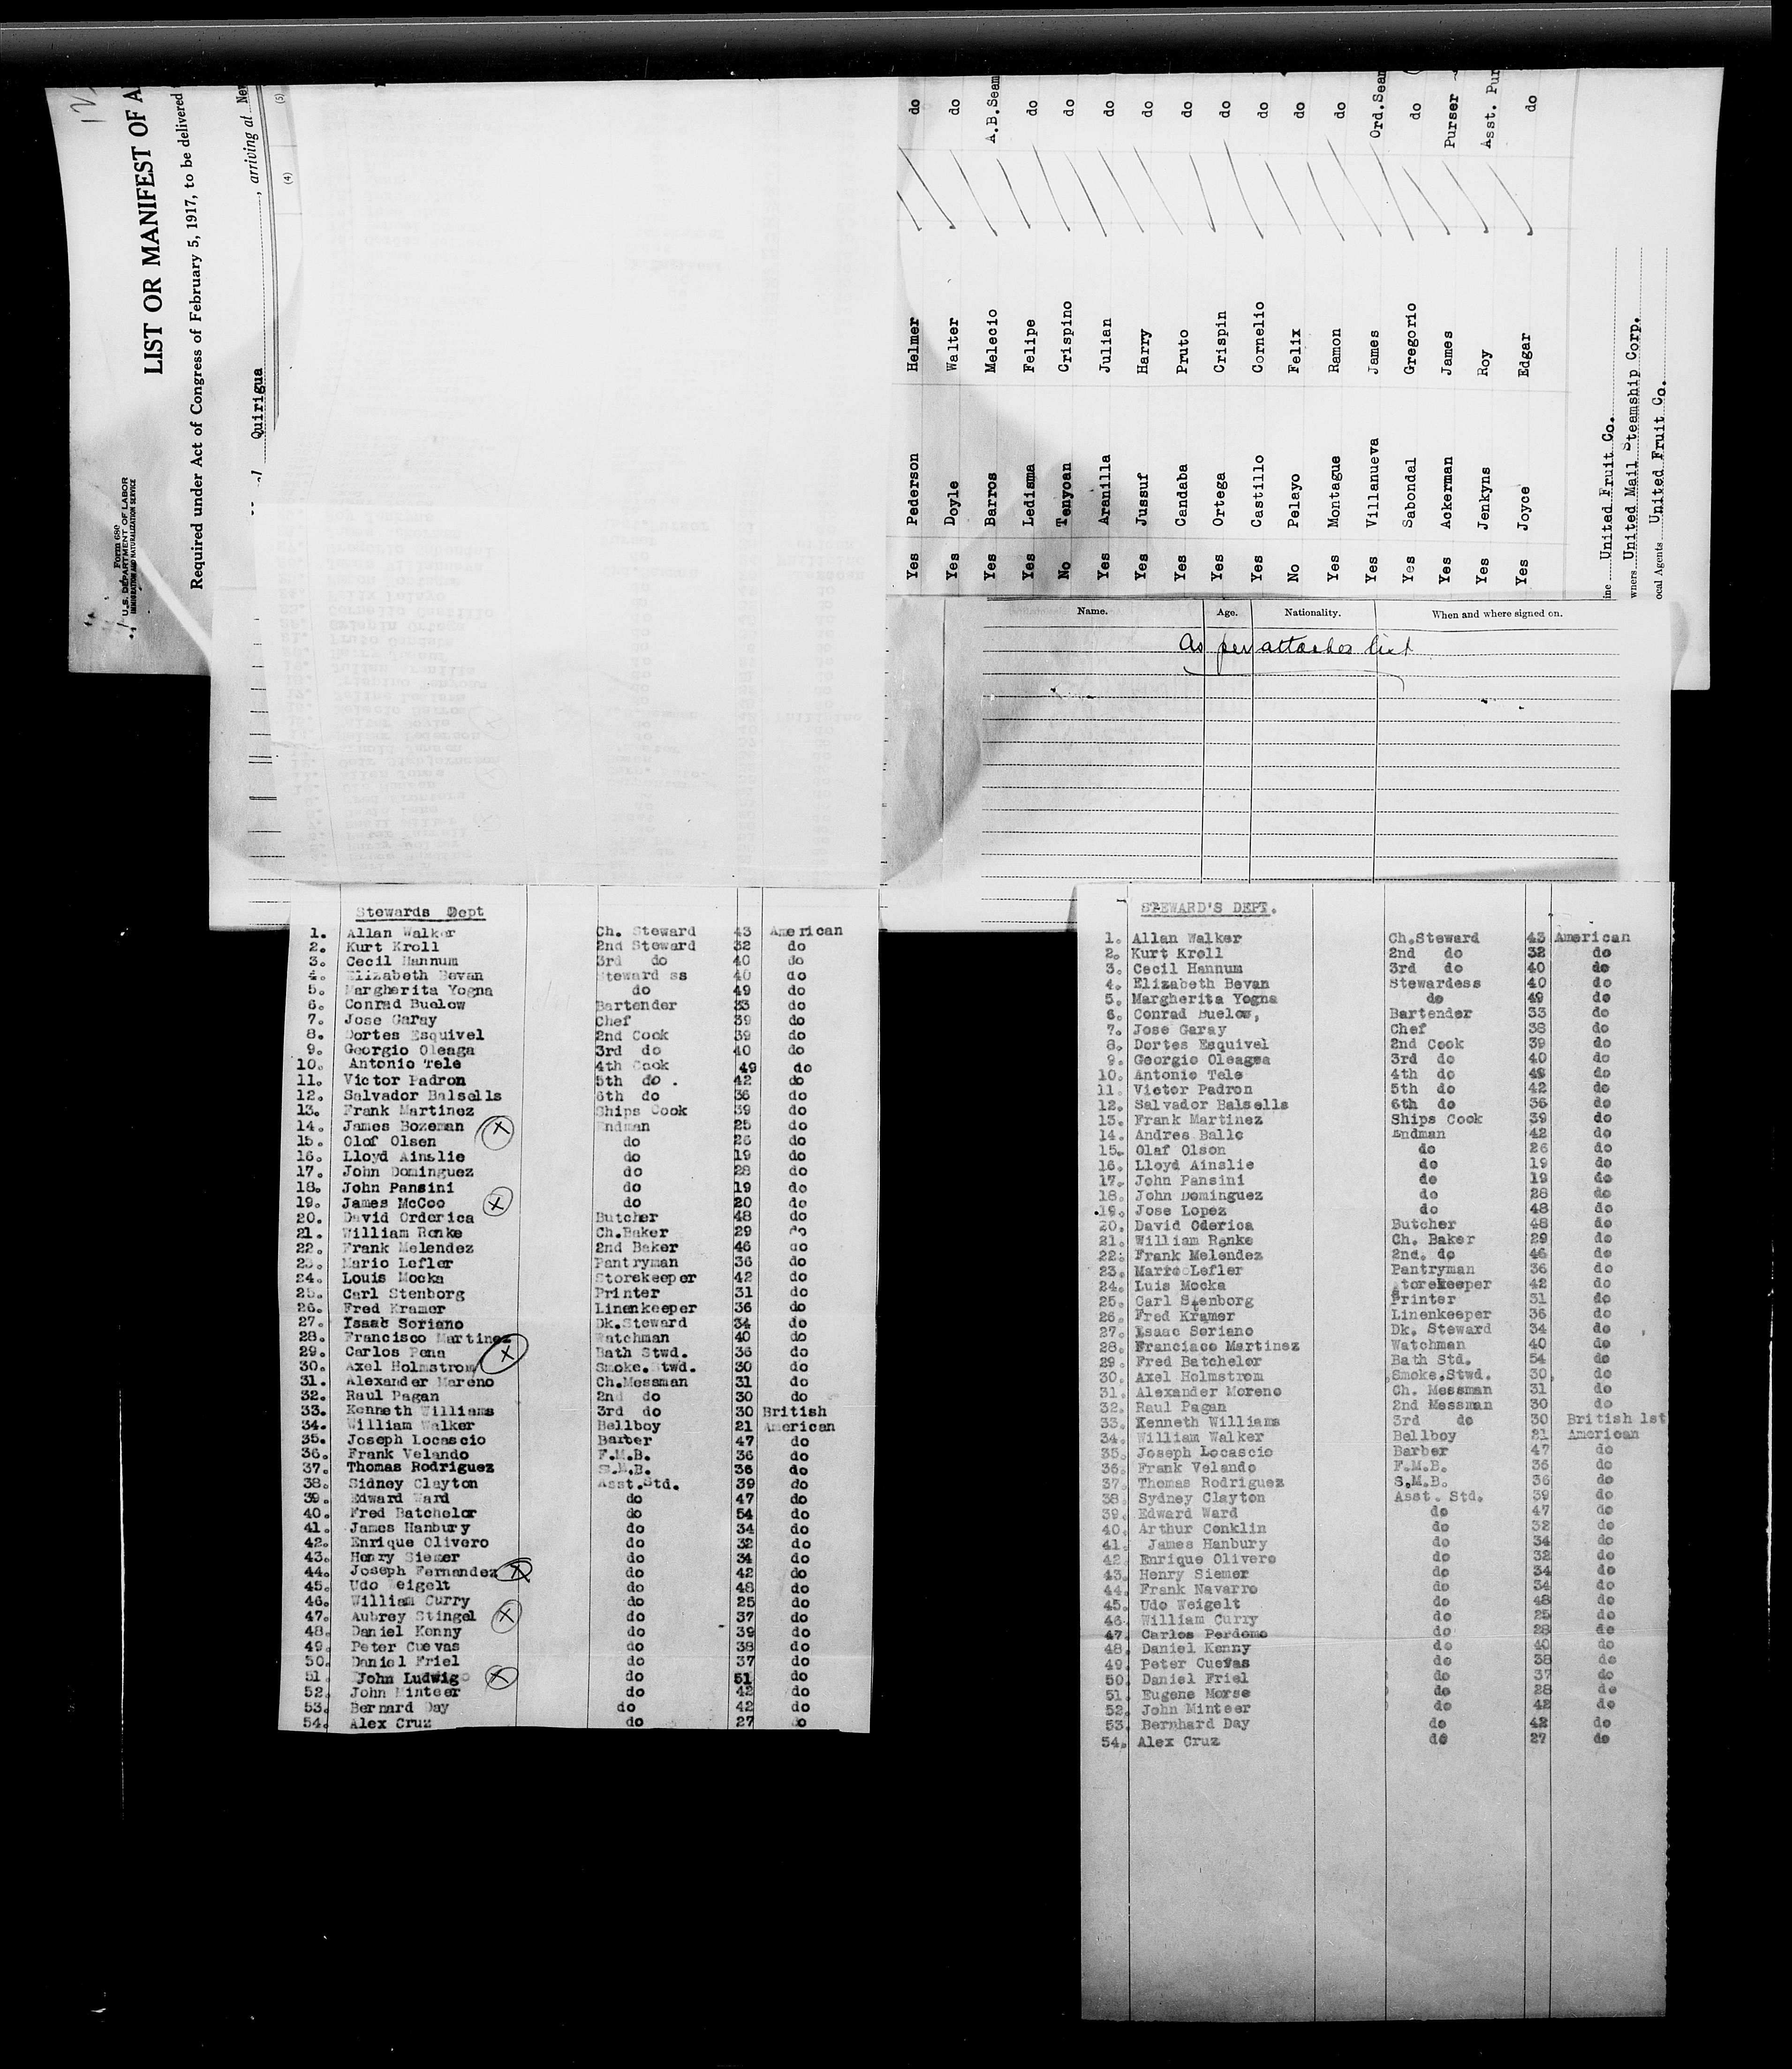 Form 680
U.S. DEPARTMENT OF LABOR
IMMIGRATION AND NATURALIZATION SERVICE
LIST OR MANIFEST OF
Required under Act of Congress of February 5, 1917, to be delivered
Quirigua, arriving at New
(4) (5)
Yes Pederson Helmer do
Yes Doyle Walter do
Yes Barros Melecio A.B.Seam
Yes Ledisma Felipe do
No Tenyoan Crispino do
Yes Aranilla Julian do
Yes Jussuf Harry do
Yes Candaba Pruto do
Yes Ortega Crispin do
Yes Castillo Cornelio do
No Pelayo Felix do
Yes Montague Ramon do
Yes Villanueva James Ord.Sean
Yes Sabondal Gregorio do
Yes Ackerman James Purser
Yes Jenkyns Roy Asst. Pur
Yes Joyce Edgar do
ine United Fruit Co.
wners United Mail Steamship Corp.
ocal Agents United Fruit Co.
Name. Age. Nationality. When and where signed on.
As per attached list
Stewards Dept
1. Allan Walker Ch. Steward 43 American
2. Kurt Kroll 2nd Steward 32 do
3. Cecil Hannum 3rd do 40 do
4. Elizabeth Bevan Steward ss 40 do
5. Margherita Yogna do 49 do
6. Conrad Buelow Bartender 33 do
7. Jose Garay Chef 39 do
8. Dortes Esquivel 2nd Cook 39 do
9. Georgio Oleaga 3rd do 40 do
10. Antonio Tele 4th Cook 49 do
11. Victor Padron 5th do . 42 do
12. Salvador Balsells 6th do 36 do
13. Frank Martinez Ships Cook 39 do
14. James Bozeman X Endman 25 do
15. Olof Olsen do 26 do
16. Lloyd Ainslie do 19 do
17. John Dominguez do 28 do
18. John Pansini do 19 do
19. James McCoo X do 20 do
20. David Orderica Butcher 48 do
21. William Renke Ch.Baker 29 do
22. Frank Melendez 2nd Baker 46 do
23. Mario Lefler Pantryman 36 do
24. Louis Mocka Storekeeper 42 do
25. Carl Stenborg Printer 31 do
26. Fred Kramer Linenkeeper 36 do
27. Isaac Soriano Dk.Steward 34 do
28. Francisco Martinez Watchman 40 do
29. Carlos Pena X Bath Stwd. 36 do
30. Axel Holmstrom Smoke.Stwd. 30 do
31. Alexander Mareno Ch.Messman 31 do
32. Raul Pagan 2nd do 30 do
33. Kenneth Williams 3rd do 30 British
34. William Walker Bellboy 21 American
35. Joseph Locascio Barber 47 do
36. Frank Velando F.M.B. 36 do
37. Thomas Rodriguez S.M.B. 36 do
38. Sidney Clayton Asst.Std. 39 do
39. Edward Ward do 47 do
40. Fred Batchelor do 54 do
41. James Hanbury do 34 do
42. Enrique Olivero do 32 do
43. Henry Siemer do 34 do
44. Joseph Fernandez X do 42 do
45. Udo Weigelt do 48 do
46. William Curry do 25 do
47. Aubrey Stingel X do 37 do
48. Daniel Kenny do 39 do
49. Peter Cuevas do 38 do
50. Daniel Friel do 37 do
51 John Ludwig X do 51 do
52. John Minteer do 42 do
53. Bernard Day do 42 do
54. Alex Cruz do 27 do
STEWARD'S DEPT.
1. Allan Walker Ch.Steward 43 American
2. Kurt Kroll 2nd do 32 do
3. Cecil Hannum 3rd do 40 do
4. Elizabeth Bevan Stewardess 40 do
5. Margherita Yogna do 49 do
6. Conrad Buelow, Bartender 33 do
7. Jose Garay Chef 38 do
8. Dortes Esquivel 2nd Cook 39 do
9. Georgio Oleagea 3rd do 40 do
10. Antonio Tele 4th do 49 do
11. Victor Padron 5th do 42 do
12. Salvador Balsells 6th do 36 do
13. Frank Martinez Ships Cook 39 do
14. Andres Ballo Endman 42 do
15. Olaf Olson do 26 do
16. Lloyd Ainslie do 19 do
17. John Pansini do 19 do
18. John Dominguez do 28 do
19. Jose Lopez do 48 do
20. David Oderica Butcher 48 do
21. William Renke Ch. Baker 29 do
22. Frank Melendez 2nd. do 46 do
23. Mario Lefler Pantryman 36 do
24. Luis Mocka Storekeeper 42 do
25. Carl Stenborg Printer 31 do
26. Fred Kramer Linenkeeper 36 do
27. Isaac Soriano Dk. Steward 34 do
28. Francisco Martinez Watchman 40 do
29. Fred Batchelor Bath Std. 54 do
30. Axel Holmstrom Smoke.Stwd. 30 do
31. Alexander Moreno Ch. Messman 31 do
32. Raul Pagan 2nd Messman 30 do
33. Kenneth Williams 3rd do 30 British 1st
34. William Walker Bellboy 21 American
35. Joseph Locascio Barber 47 do
36. Frank Velando F.M.B. 36 do
37. Thomas Rodriguez S.M.B. 36 do
38. Sydney Clayton Asst. Std. 39 do
39. Edward Ward do 47 do
40. Arthur Conklin do 32 do
41. James Hanbury do 34 do
42. Enrique Olivero do 32 do
43. Henry Siemer do 34 do
44. Frank Navarro do 34 do
45. Udo Weigelt do 48 do
46. William Curry do 25 do
47. Carlos Perdomo do 28 do
48. Daniel Kenny do 40 do
49. Peter Cuevas do 38 do
50. Daniel Friel do 37 do
51. Eugene Morse do 28 do
52. John Minteer do 42 do
53. Bernhard Day do 42 do
54. Alex Cruz do 27 do